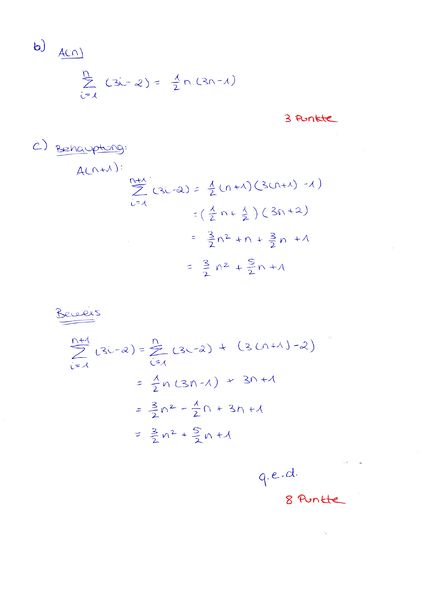 b) A(n)
n∑i=1 (3i-2) = 1/2 n (3n-1)
3 Punkte
c) Behauptung:
A(n+1):
n+1∑i=1 (3i-2) = 1/2 (n+1) (3(n+1) -1)
= (1/2 n + 1/2) (3n+2)
= 3/2 n² + n + 3/2 n + 1
= 3/2 n² + 5/2 n + 1
Beweis
n+1∑i=1 (3i-2) = n∑i=1 (3i-2) + (3(n+1) -2)
= 1/2 n (3n-1) + 3n+1
= 3/2 n² - 1/2 n + 3n+1
= 3/2 n² + 5/2 n + 1
q.e.d.
8 Punkte